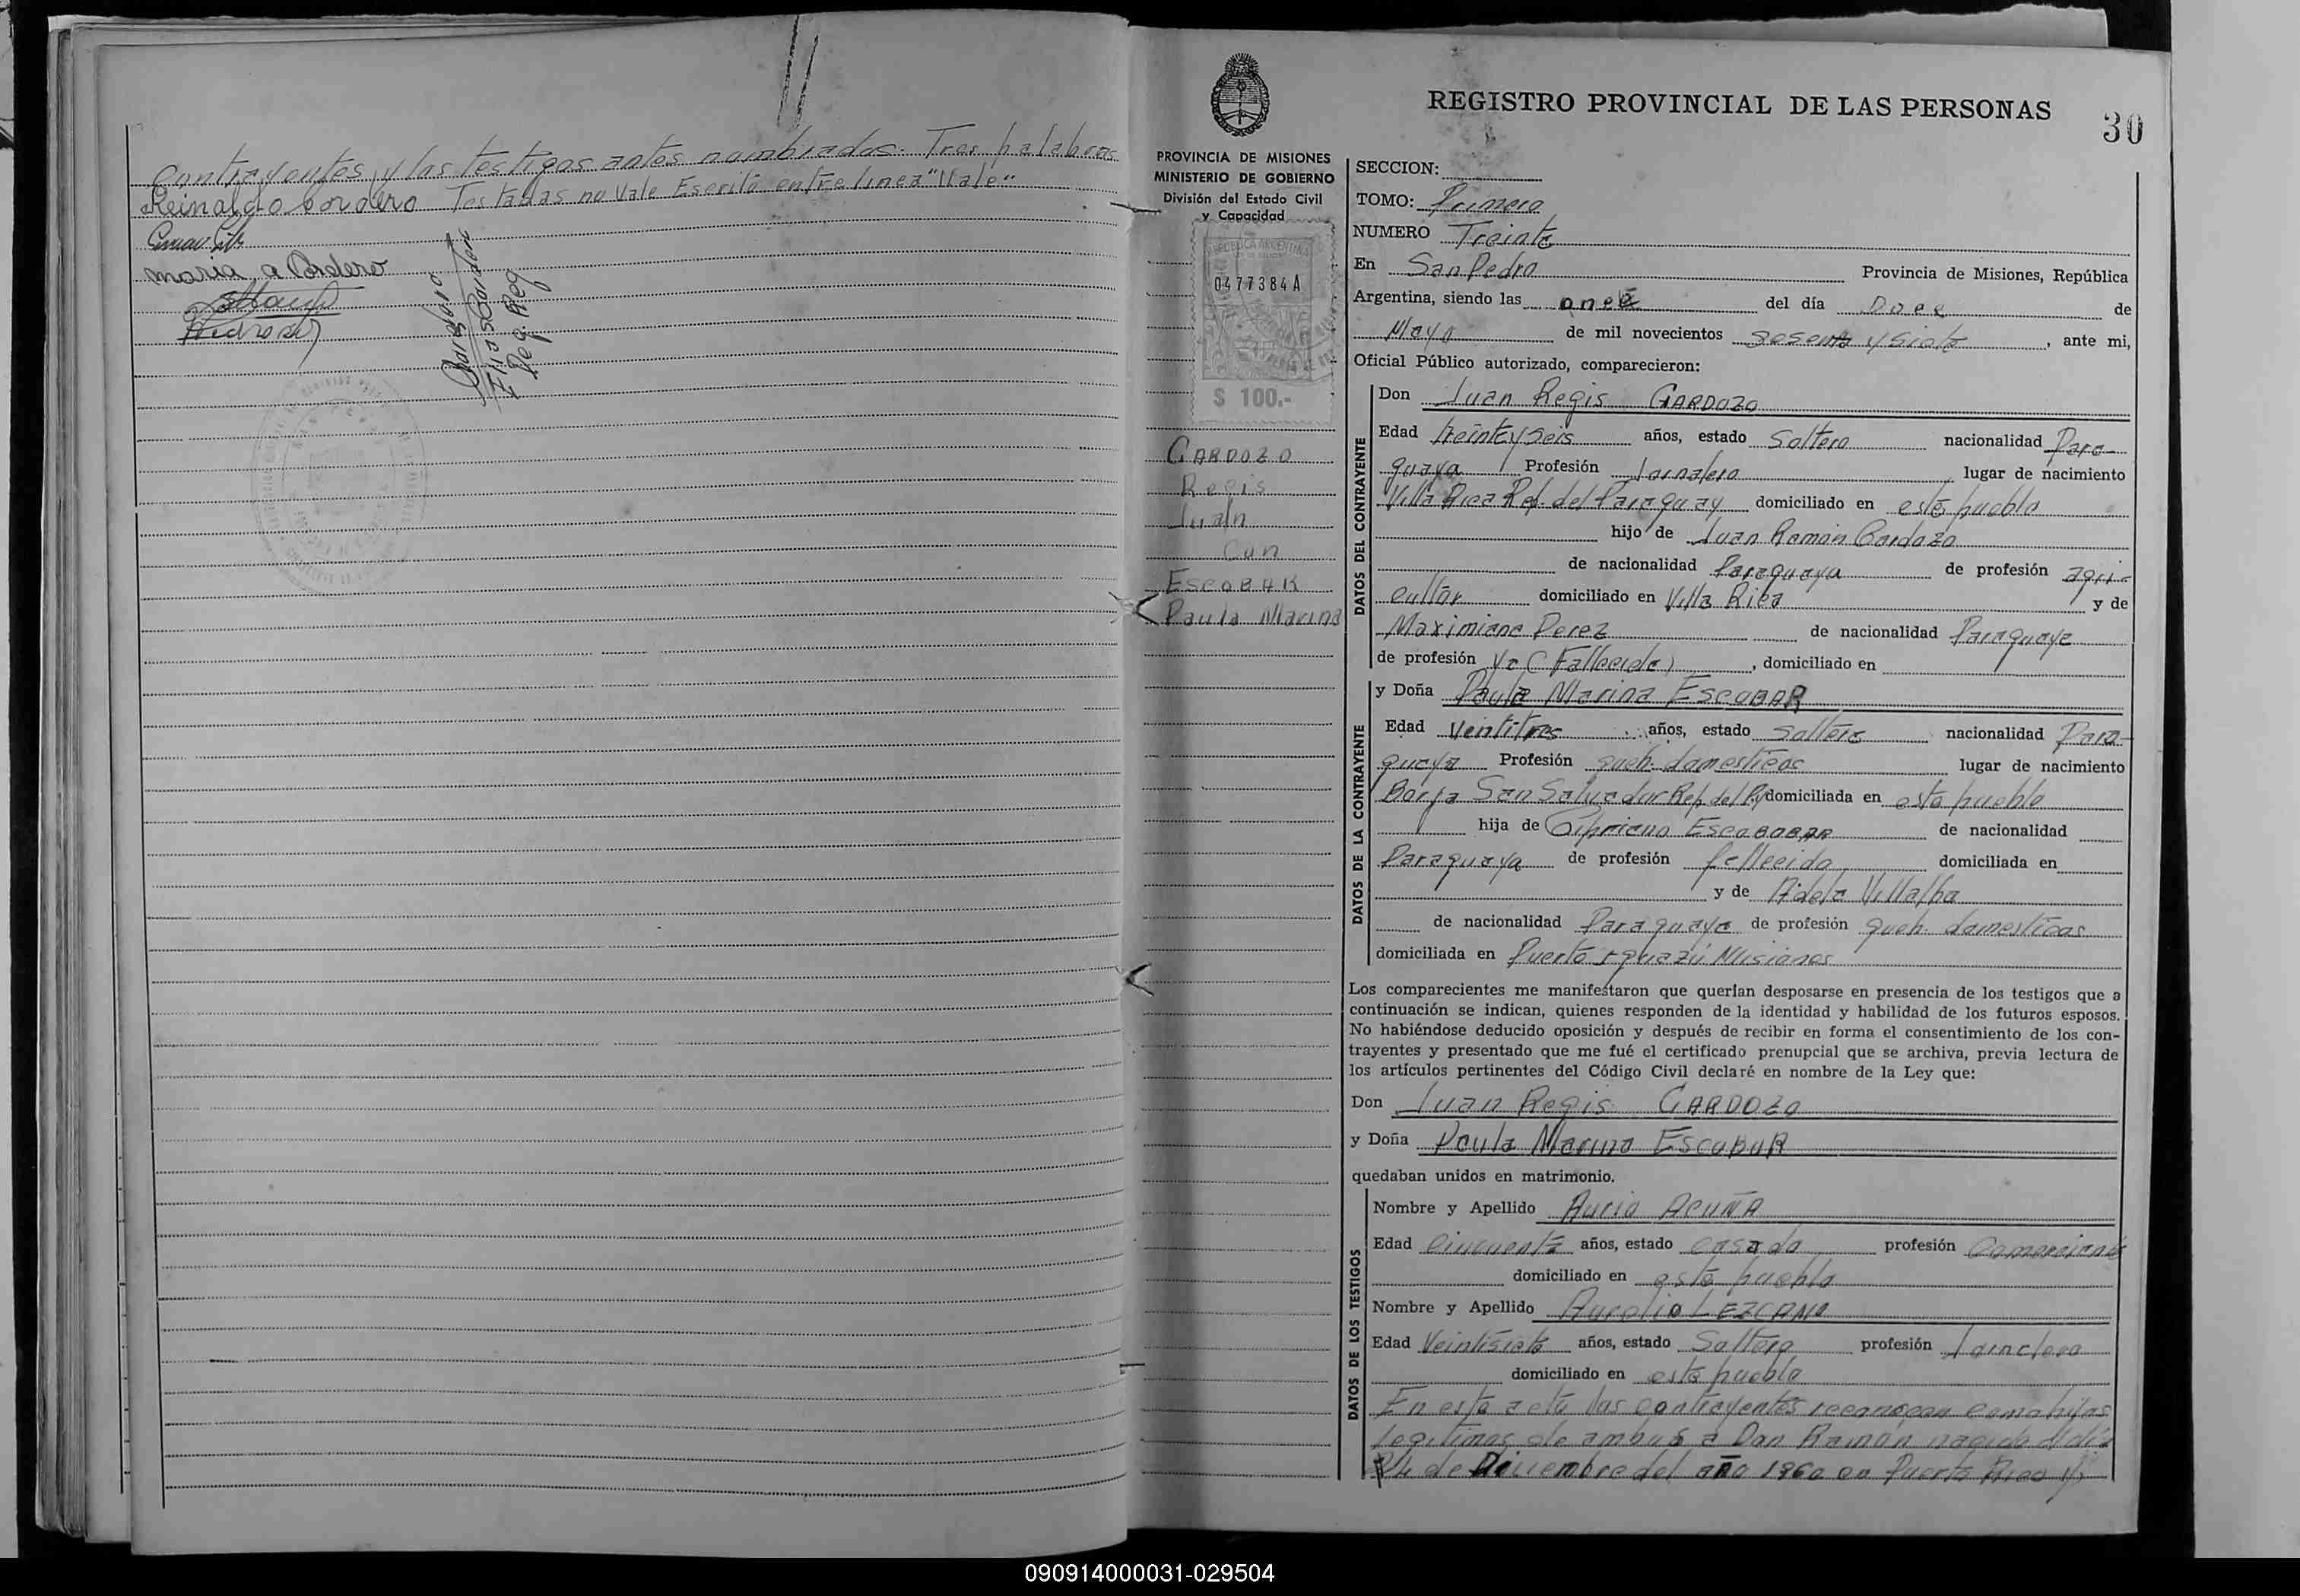 Contrayentes y los testigos antes nombrados. Tres palabras
Reinaldo Cordero Testadas no vale Escrito entre linea "Vale"
maria a Cordero
REGISTRO PROVINCIAL DE LAS PERSONAS
30
PROVINCIA DE MISIONES
MINISTERIO DE GOBIERNO
División del Estado Civil
y Capacidad
REPUBLICA ARGENTINA
0477384A
$ 100.-
CARDOZO
Regis
Juan
Con
ESCOBAR
Paula Marina
SECCION:
TOMO: Primero
NUMERO Treinta
En San Pedro Provincia de Misiones, República
Argentina, siendo las once del día Doce de
Mayo de mil novecientos sesenta y siete, ante mi,
Oficial Público autorizado, comparecieron:
DATOS DEL CONTRAYENTE
Don Juan Regis CARDOZO
Edad treinta y seis años, estado Soltero nacionalidad Para-
guaya Profesión Jornalero lugar de nacimiento
Villa Rica Rep. del Paraguay domiciliado en este pueblo
hijo de Juan Ramon Cardozo
de nacionalidad Paraguaya de profesión agri-
cultor domiciliado en Villa Rica y de
Maximiana Perez de nacionalidad Paraguaya
de profesión Ya (Fallecida), domiciliado en
DATOS DE LA CONTRAYENTE
y Doña Paula Marina ESCOBAR
Edad Veintitres años, estado Soltera nacionalidad Para-
guaya Profesión queh. domesticos lugar de nacimiento
Borja San Salvador Rep. del Py domiciliada en este pueblo
hija de Cipriano ESCOBOBAR de nacionalidad
Paraguaya de profesión fallecido domiciliada en
y de Adela Villalba
de nacionalidad Paraguaya de profesión queh. domesticos
domiciliada en Puerto Iguazú Misiones
Los comparecientes me manifestaron que querían desposarse en presencia de los testigos que a
continuación se indican, quienes responden de la identidad y habilidad de los futuros esposos.
No habiéndose deducido oposición y después de recibir en forma el consentimiento de los con-
trayentes y presentado que me fué el certificado prenupcial que se archiva, previa lectura de
los artículos pertinentes del Código Civil declaré en nombre de la Ley que:
Don Juan Regis CARDOZO
y Doña Paula Marina ESCOBAR
quedaban unidos en matrimonio.
DATOS DE LOS TESTIGOS
Nombre y Apellido ACUÑA
Edad Cincuenta años, estado casado profesión Comerciante
domiciliado en este pueblo
Nombre y Apellido Aurelio LEZCANO
Edad Veintisiete años, estado Soltero profesión Jornalero
domiciliado en este pueblo
En este acto los contrayentes reconocen como hijos
legitimos de ambos a Don Ramón nacido el día
24 de Diciembre del año 1960 en Puerto Rico y
090914000031-029504